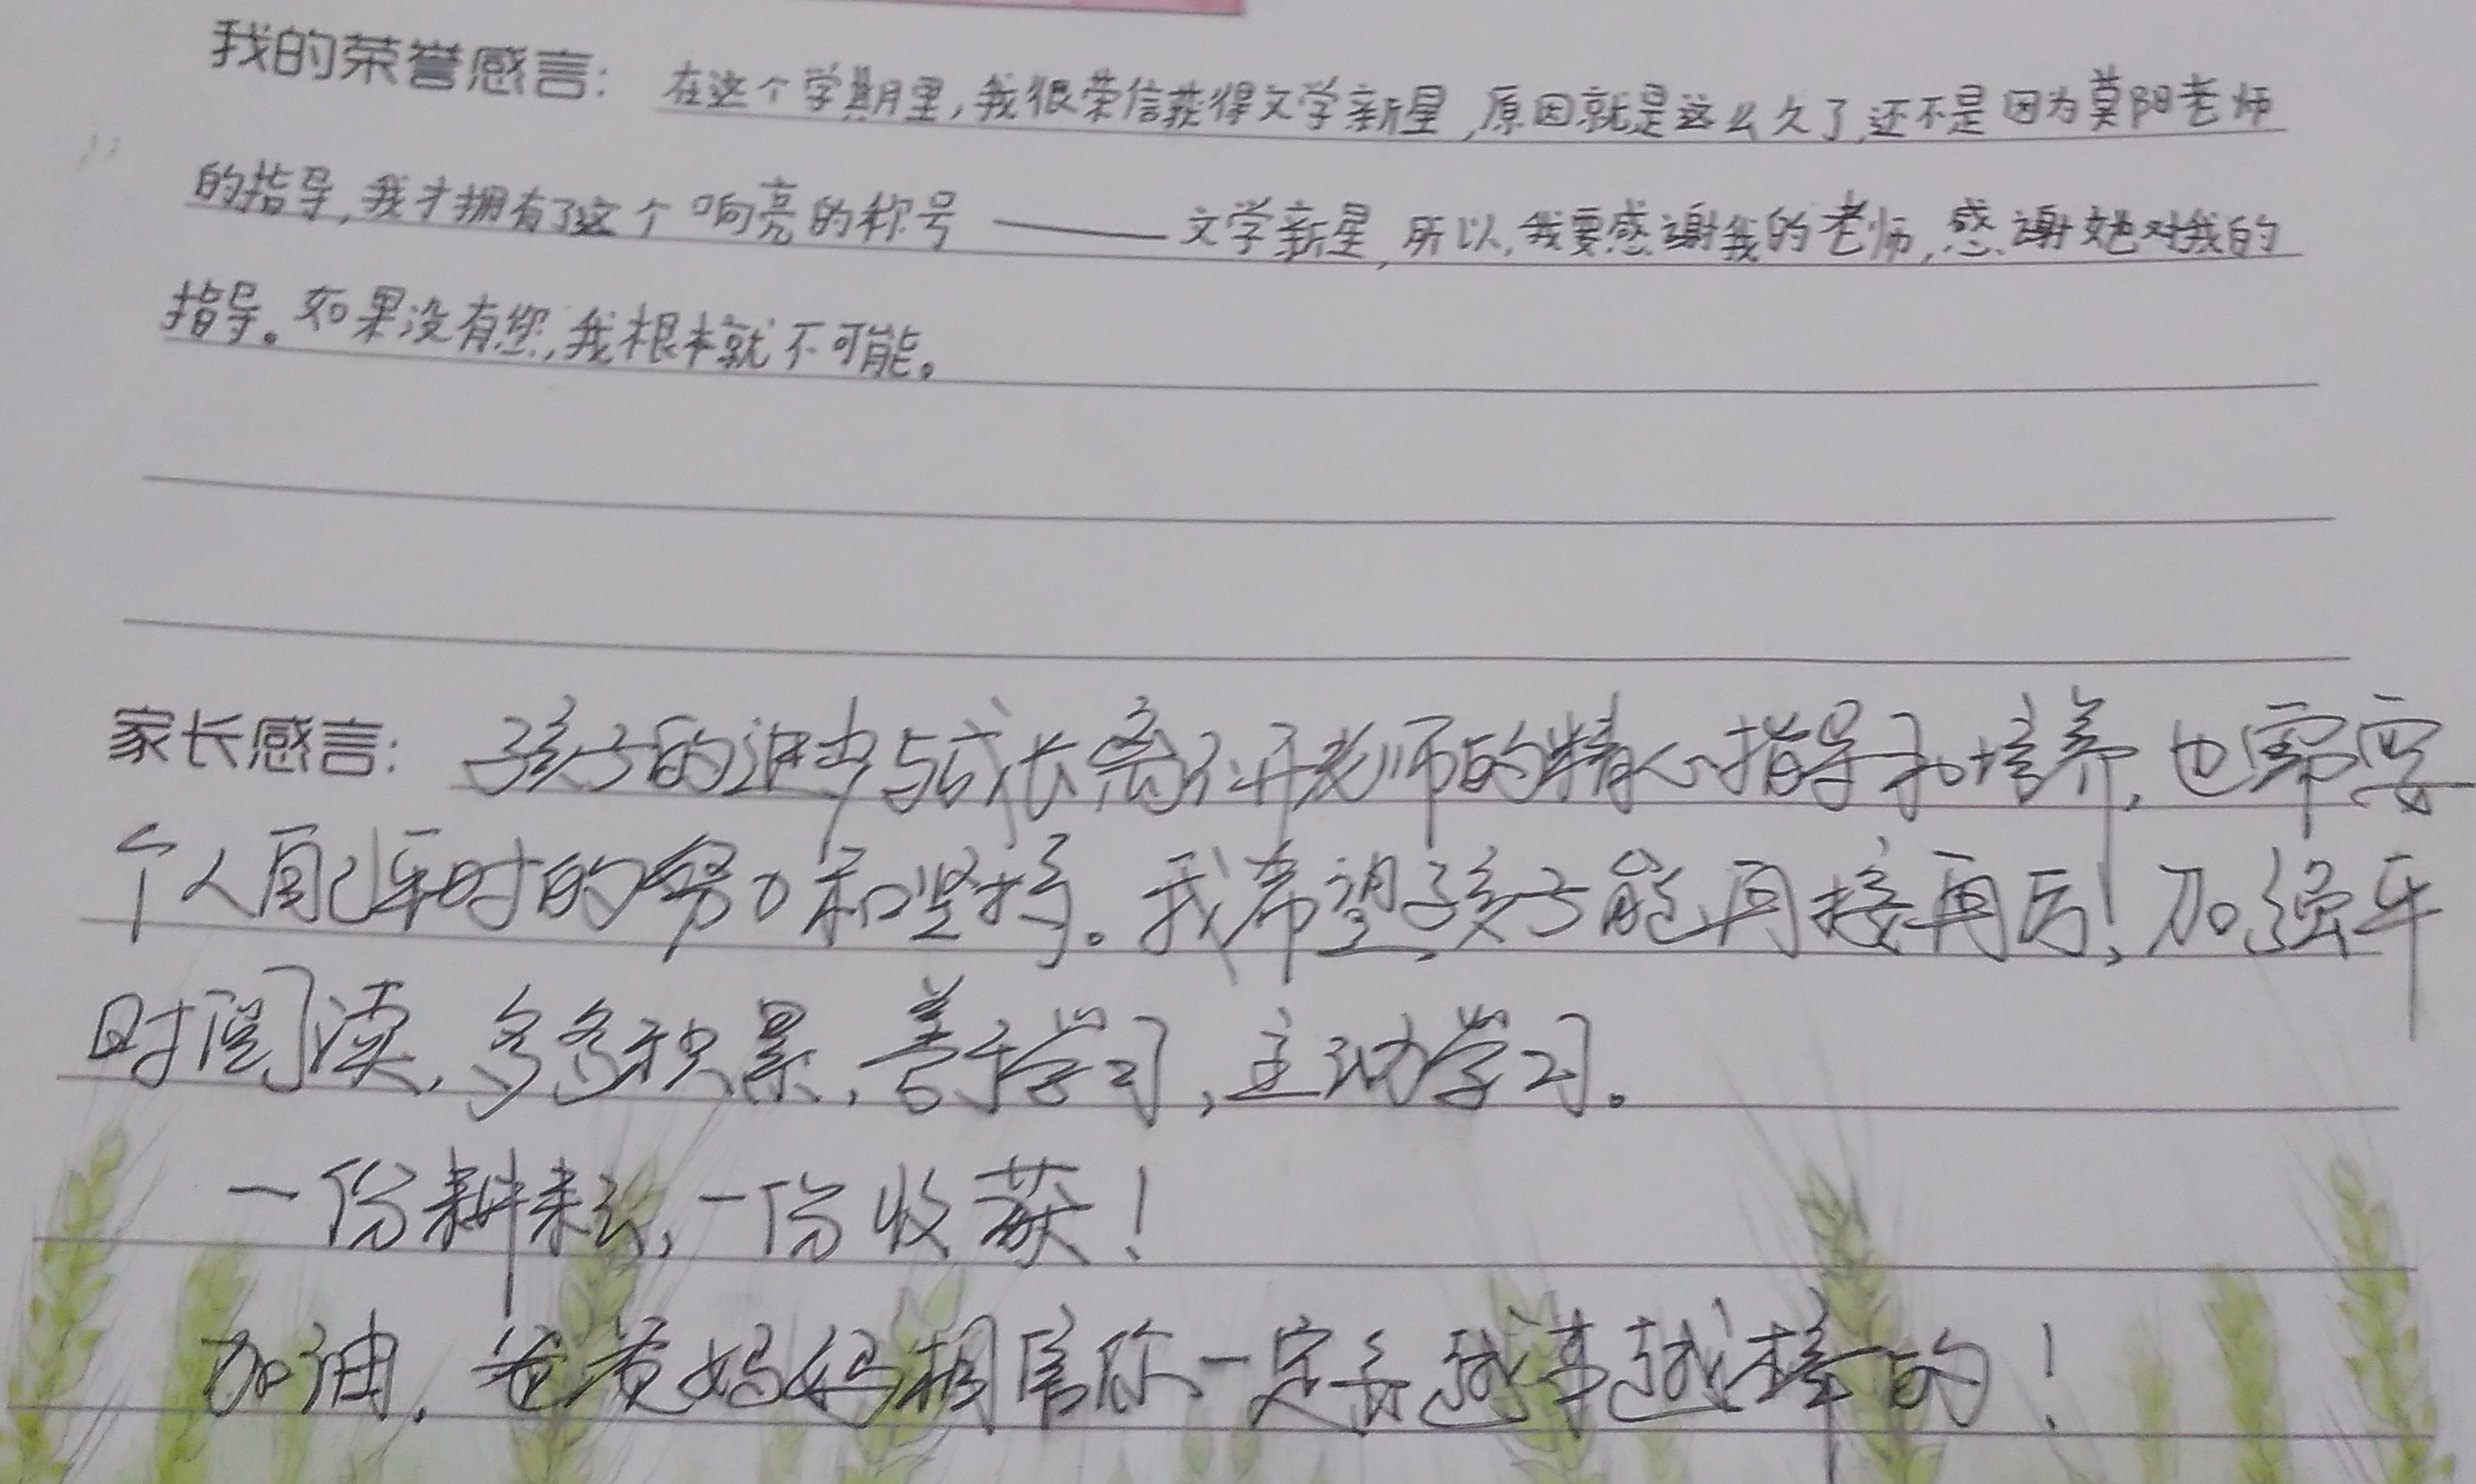 我的荣誉感言：在这个学期里，我很荣信获得文学新星，原因就是这么久了，还不是因为莫阳老师
的指导，我才拥有了这个响亮的称号——文学新星，所以，我要感谢我的老师，感谢她对我的
指导。如果没有您，我根本就不可能。
家长感言：孩子的进步与成长离不开老师的精心指导和培养，也需要
个人自己平时的努力和坚持。我希望孩子能再接再厉！加强平
时阅读，多多积累，善于学习，主动学习。
一份耕耘，一份收获！
加油，爸爸妈妈相信你一定会越来越棒的！